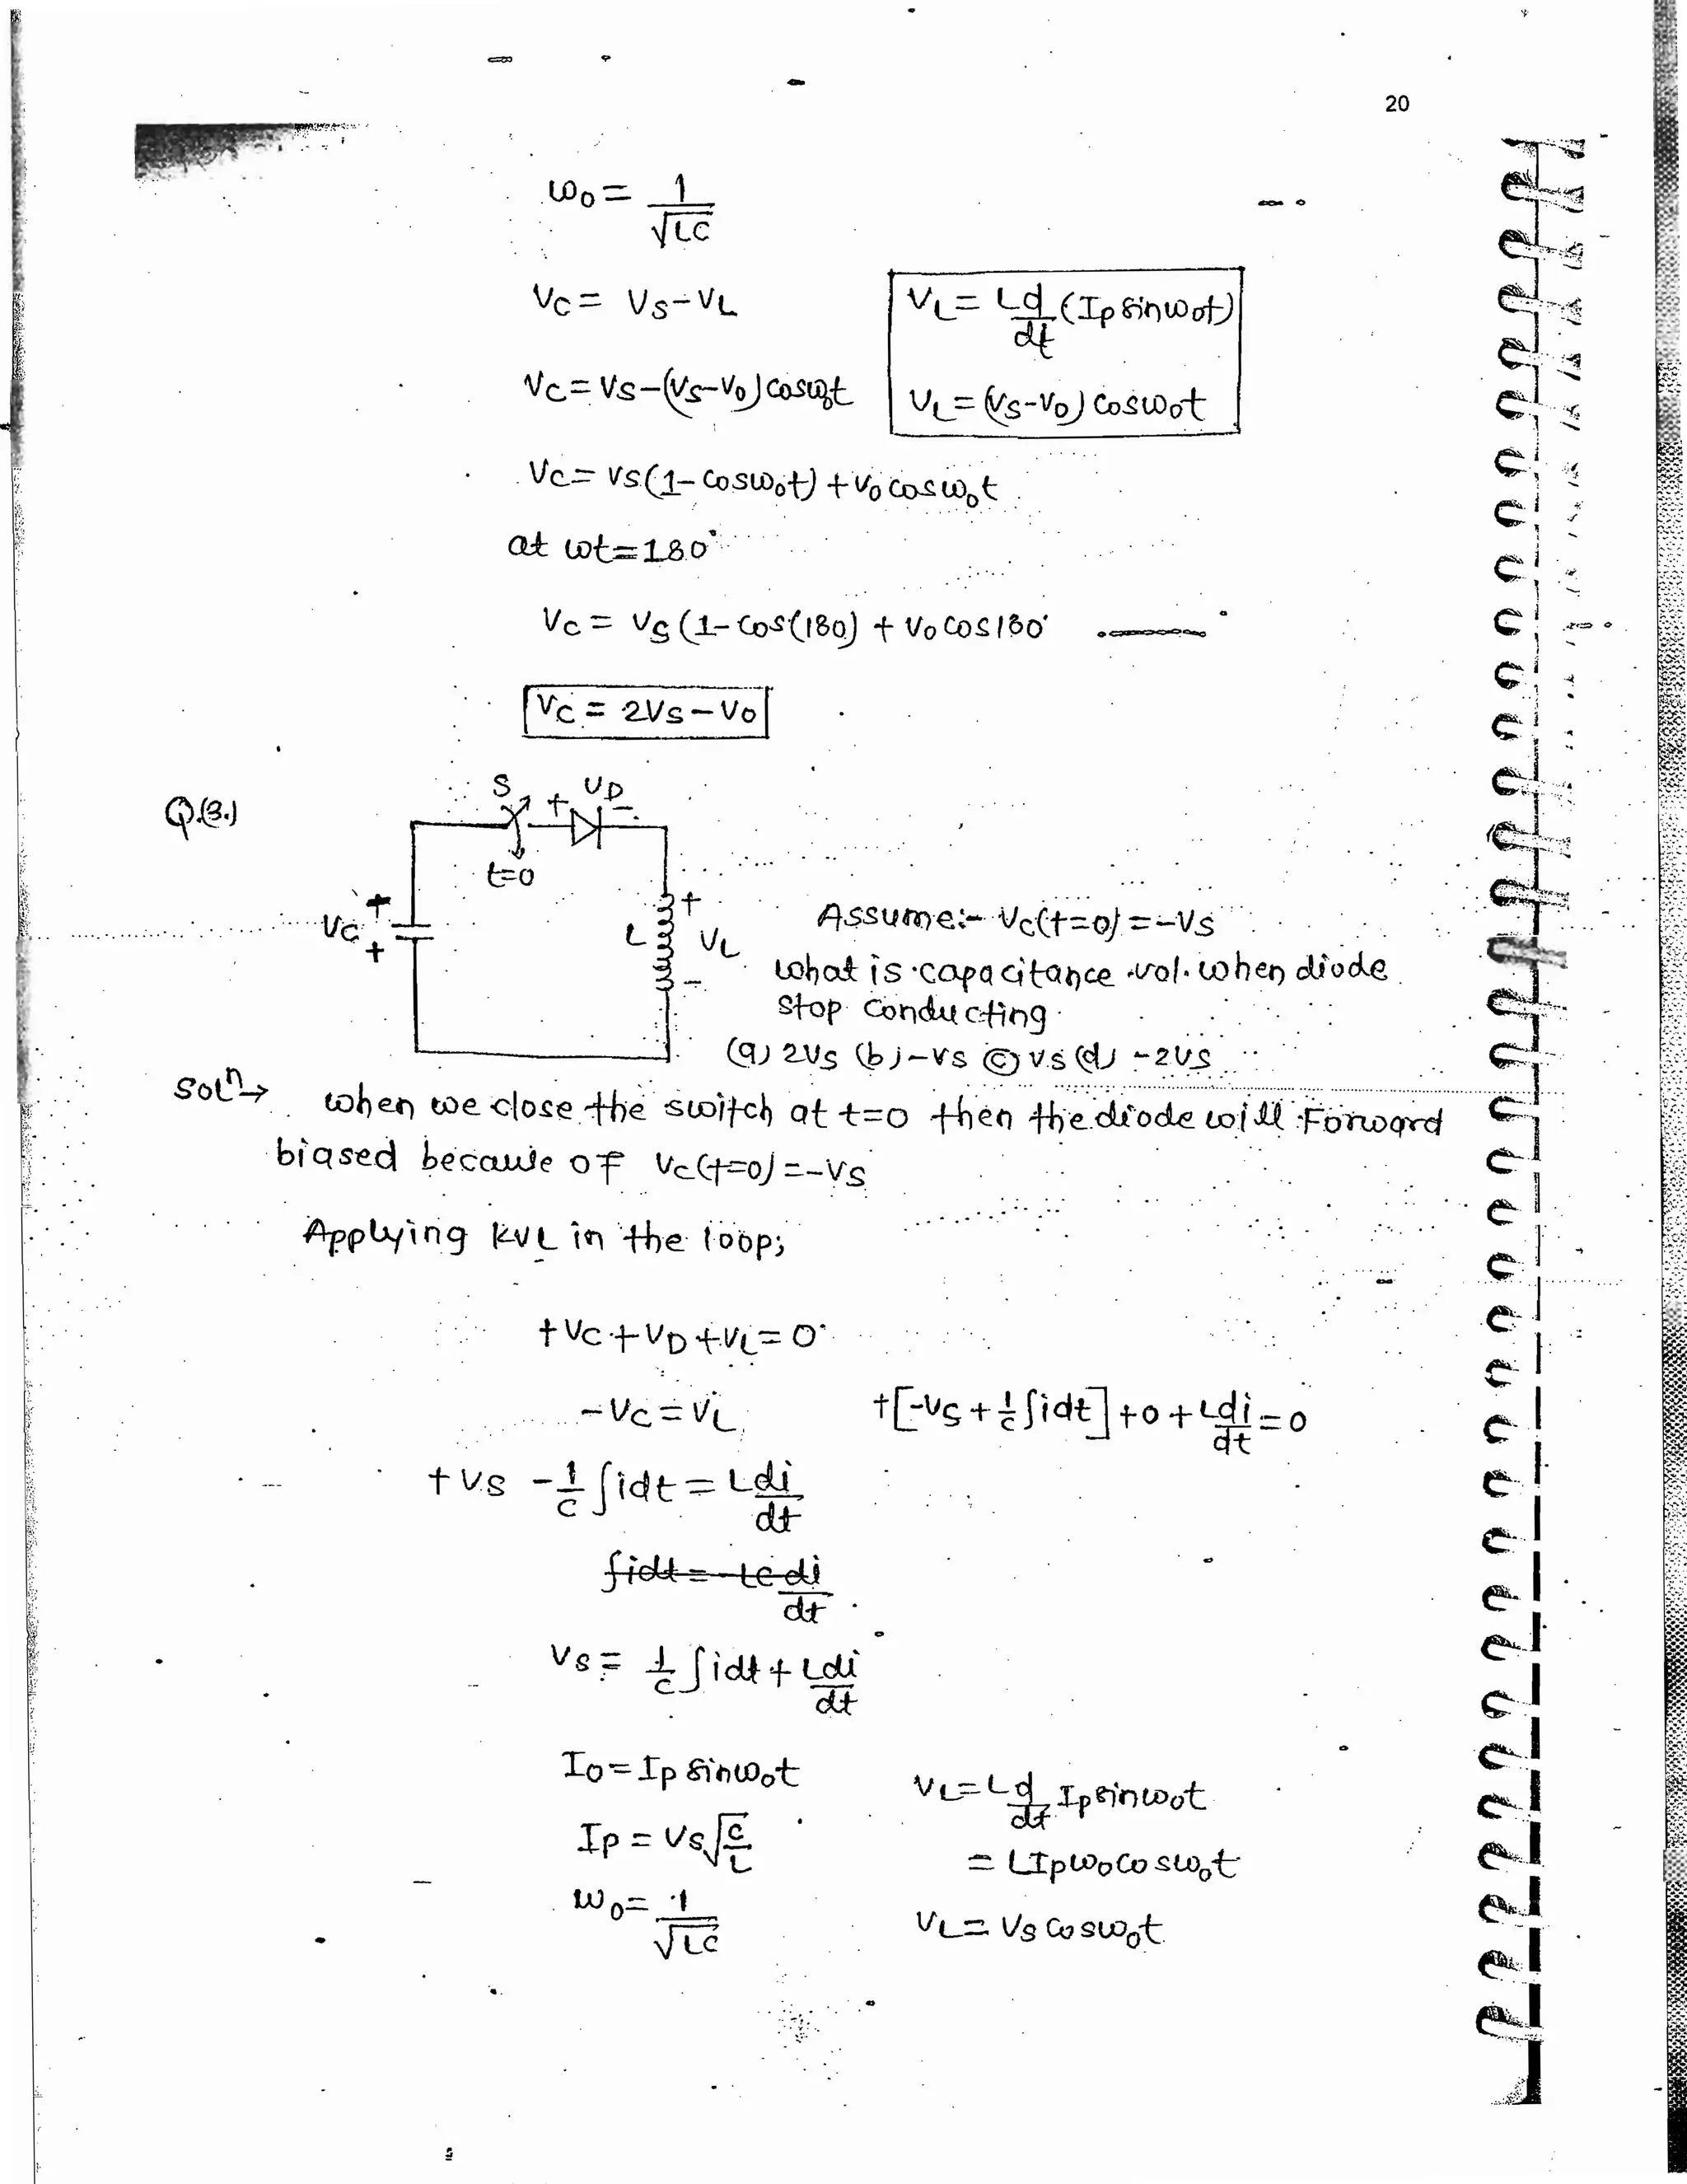 20
ω₀ = 1/√LC
Vc = Vs - VL
VL = L d/dt (Ip sinω₀t)
Vc = Vs - (Vs - V₀) cosω₀t
VL = (Vs - V₀) cosω₀t
Vc = Vs (1 - cosω₀t) + V₀ cosω₀t
at ωt = 180°
Vc = Vs (1 - cos(180) + V₀ cos180°
Vc = 2Vs - V₀
Q.(3.)
S
+ VD -
t=0
+
Vc
+
L
+
VL
-
Assume:- Vc(t=0) = -Vs
what is capacitance vol. when diode
stop conducting
(a) 2Vs (b) -Vs (c) Vs (d) -2Vs
Solⁿ→ when we close the switch at t=0 then the diode will Forward
biased because of Vc(t=0) = -Vs
Applying KVL in the loop;
+Vc + VD + VL = 0
-Vc = VL
+[-Vs + 1/c ∫idt] + 0 + L di/dt = 0
+Vs - 1/c ∫idt = L di/dt
∫idt = -LC di/dt
Vs = 1/c ∫idt + L di/dt
I₀ = Ip sinω₀t
VL = L d/dt Ip sinω₀t
Ip = Vs √C/L
= L Ip ω₀ cosω₀t
ω₀ = 1/√LC
VL = Vs cosω₀t